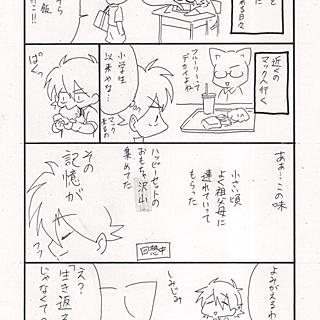 ある日々
飯!!
近くの
マックへ行く
フルーリーって
デカイよね
小学生
以来かな…
マック
来るの
ぱくっ
あぁ…この味
小さい頃
よく祖父母に
連れていって
もらった
ハッピーセットの
おもちゃ沢山
集めてた
その
記憶が
よみがえるわ
回想中
しみじみ
え?
「生き返る
じゃなくて